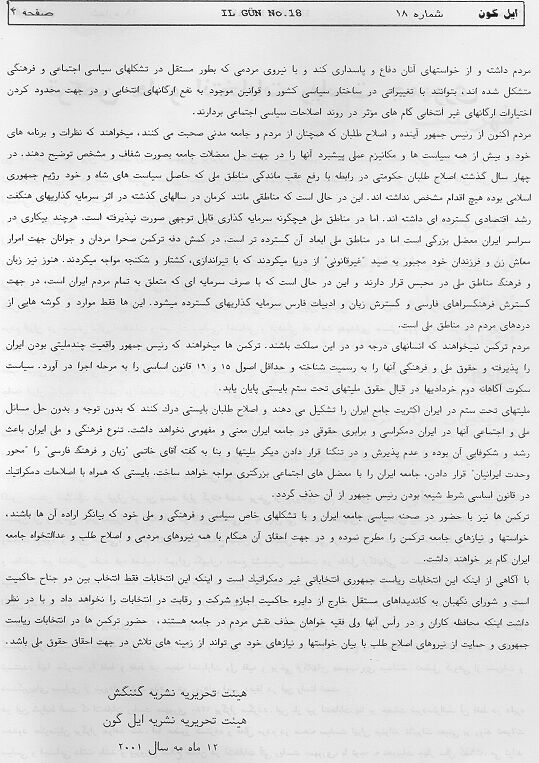 ایل گون شماره ۱۸ IL GÜN No.18 صفحه ۲
مردم داشته و از خواستهای آنان دفاع و پاسداری کند و با نیروی مردمی که بطور مستقل در تشکلهای سیاسی اجتماعی و فرهنگی
متشکل شده اند، بتوانند با تغییراتی در ساختار سیاسی کشور و قوانین موجود به نفع ارگانهای انتخابی و در جهت محدود کردن
اختیارات ارگانهای غیر انتخابی گام های موثر در روند اصلاحات سیاسی اجتماعی بردارند.
مردم اکنون از رئیس جمهور آینده و اصلاح طلبان که همچنان از مردم و جامعه مدنی صحبت می کنند، میخواهند که نظرات و برنامه های
خود و بیش از همه سیاست ها و مکانیزم عملی پیشبرد آنها را در جهت حل معضلات جامعه بصورت شفاف و مشخص توضیح دهند. در
چهار سال گذشته اصلاح طلبان حکومتی در رابطه با رفع عقب ماندگی مناطق ملی که حاصل سیاست های شاه و خود رژیم جمهوری
اسلامی بوده هیچ اقدام مشخص نداشته اند. این در حالی است که مناطقی مانند کرمان در سالهای گذشته در اثر سرمایه گذاریهای هنگفت
رشد اقتصادی گسترده ای داشته اند. اما در مناطق ملی هیچگونه سرمایه گذاری قابل توجهی صورت نپذیرفته است. هرچند بیکاری در
سراسر ایران معضل بزرگی است اما در مناطق ملی ابعاد آن گسترده تر است. در کمش دفه ترکمن صحرا مردان و جوانان جهت امرار
معاش زن و فرزندان خود مجبور به صید "غیرقانونی" از دریا میگردند که با تیراندازی، کشتار و شکنجه مواجه میگردند. هنوز نیز زبان
و فرهنگ مناطق ملی در محبس قرار دارند و این در حالی است که با صرف سرمایه ای که متعلق به تمام مردم ایران است، در جهت
گسترش فرهنگسراهای فارسی و گسترش زبان و ادبیات فارس سرمایه گذاریهای گسترده میشود. این ها فقط موارد و گوشه هایی از
دردهای مردم در مناطق ملی است.
مردم ترکمن نمیخواهند که انسانهای درجه دو در این مملکت باشند. ترکمن ها میخواهند که رئیس جمهور واقعیت چندملیتی بودن ایران
را پذیرفته و حقوق ملی و فرهنگی آنها را به رسمیت شناخته و حداقل اصول ۱۵ و ۱۹ قانون اساسی را به مرحله اجرا در آورد. سیاست
سکوت آگاهانه دوم خردادیها در قبال حقوق ملیتهای تحت ستم بایستی پایان یابد.
ملیتهای تحت ستم در ایران اکثریت جامع ایران را تشکیل می دهند و اصلاح طلبان بایستی درك کنند که بدون توجه و بدون حل مسائل
ملی و اجتماعی آنها در ایران دمکراسی و برابری حقوقی در جامعه ایران معنی و مفهومی نخواهد داشت. تنوع فرهنگی و ملی ایران باعث
رشد و شکوفایی آن بوده و عدم پذیرش و در تنگنا قرار دادن دیگر ملیتها و بنا به گفته آقای خاتمی "زبان و فرهنگ فارسی" را "محور
وحدت ایرانیان" قرار دادن، جامعه ایران را با معضل های اجتماعی بزرگتری مواجه خواهد ساخت. بایستی که همراه با اصلاحات دمکراتیك
در قانون اساسی شرط شیعه بودن رئیس جمهور از آن حذف گردد.
ترکمن ها نیز با حضور در صحنه سیاسی جامعه ایران و با تشکلهای خاص سیاسی و فرهنگی و ملی خود که بیانگر اراده آن ها باشند،
خواستها و نیازهای جامعه ترکمن را مطرح نموده و در جهت احقاق آن همگام با همه نیروهای مردمی و اصلاح طلب و عدالتخواه جامعه
ایران گام بر خواهند داشت.
با آگاهی از اینکه این انتخابات ریاست جمهوری انتخاباتی غیر دمکراتیك است و اینکه این انتخابات فقط انتخاب بین دو جناح حاکمیت
است و شورای نگهبان به کاندیداهای مستقل خارج از دایره حاکمیت اجازه شرکت و رقابت در انتخابات را نخواهد داد و با در نظر
داشت اینکه محافظه کاران و در رأس آنها ولی فقیه خواهان حذف نقش مردم در جامعه هستند، حضور ترکمن ها در انتخابات ریاست
جمهوری و حمایت از نیروهای اصلاح طلب با بیان خواستها و نیازهای خود می تواند از زمینه های تلاش در جهت احقاق حقوق ملی باشد.
هیئت تحریریه نشریه گنگش
هیئت تحریریه نشریه ایل گون
۱۲ ماه مه سال ۲۰۰۱